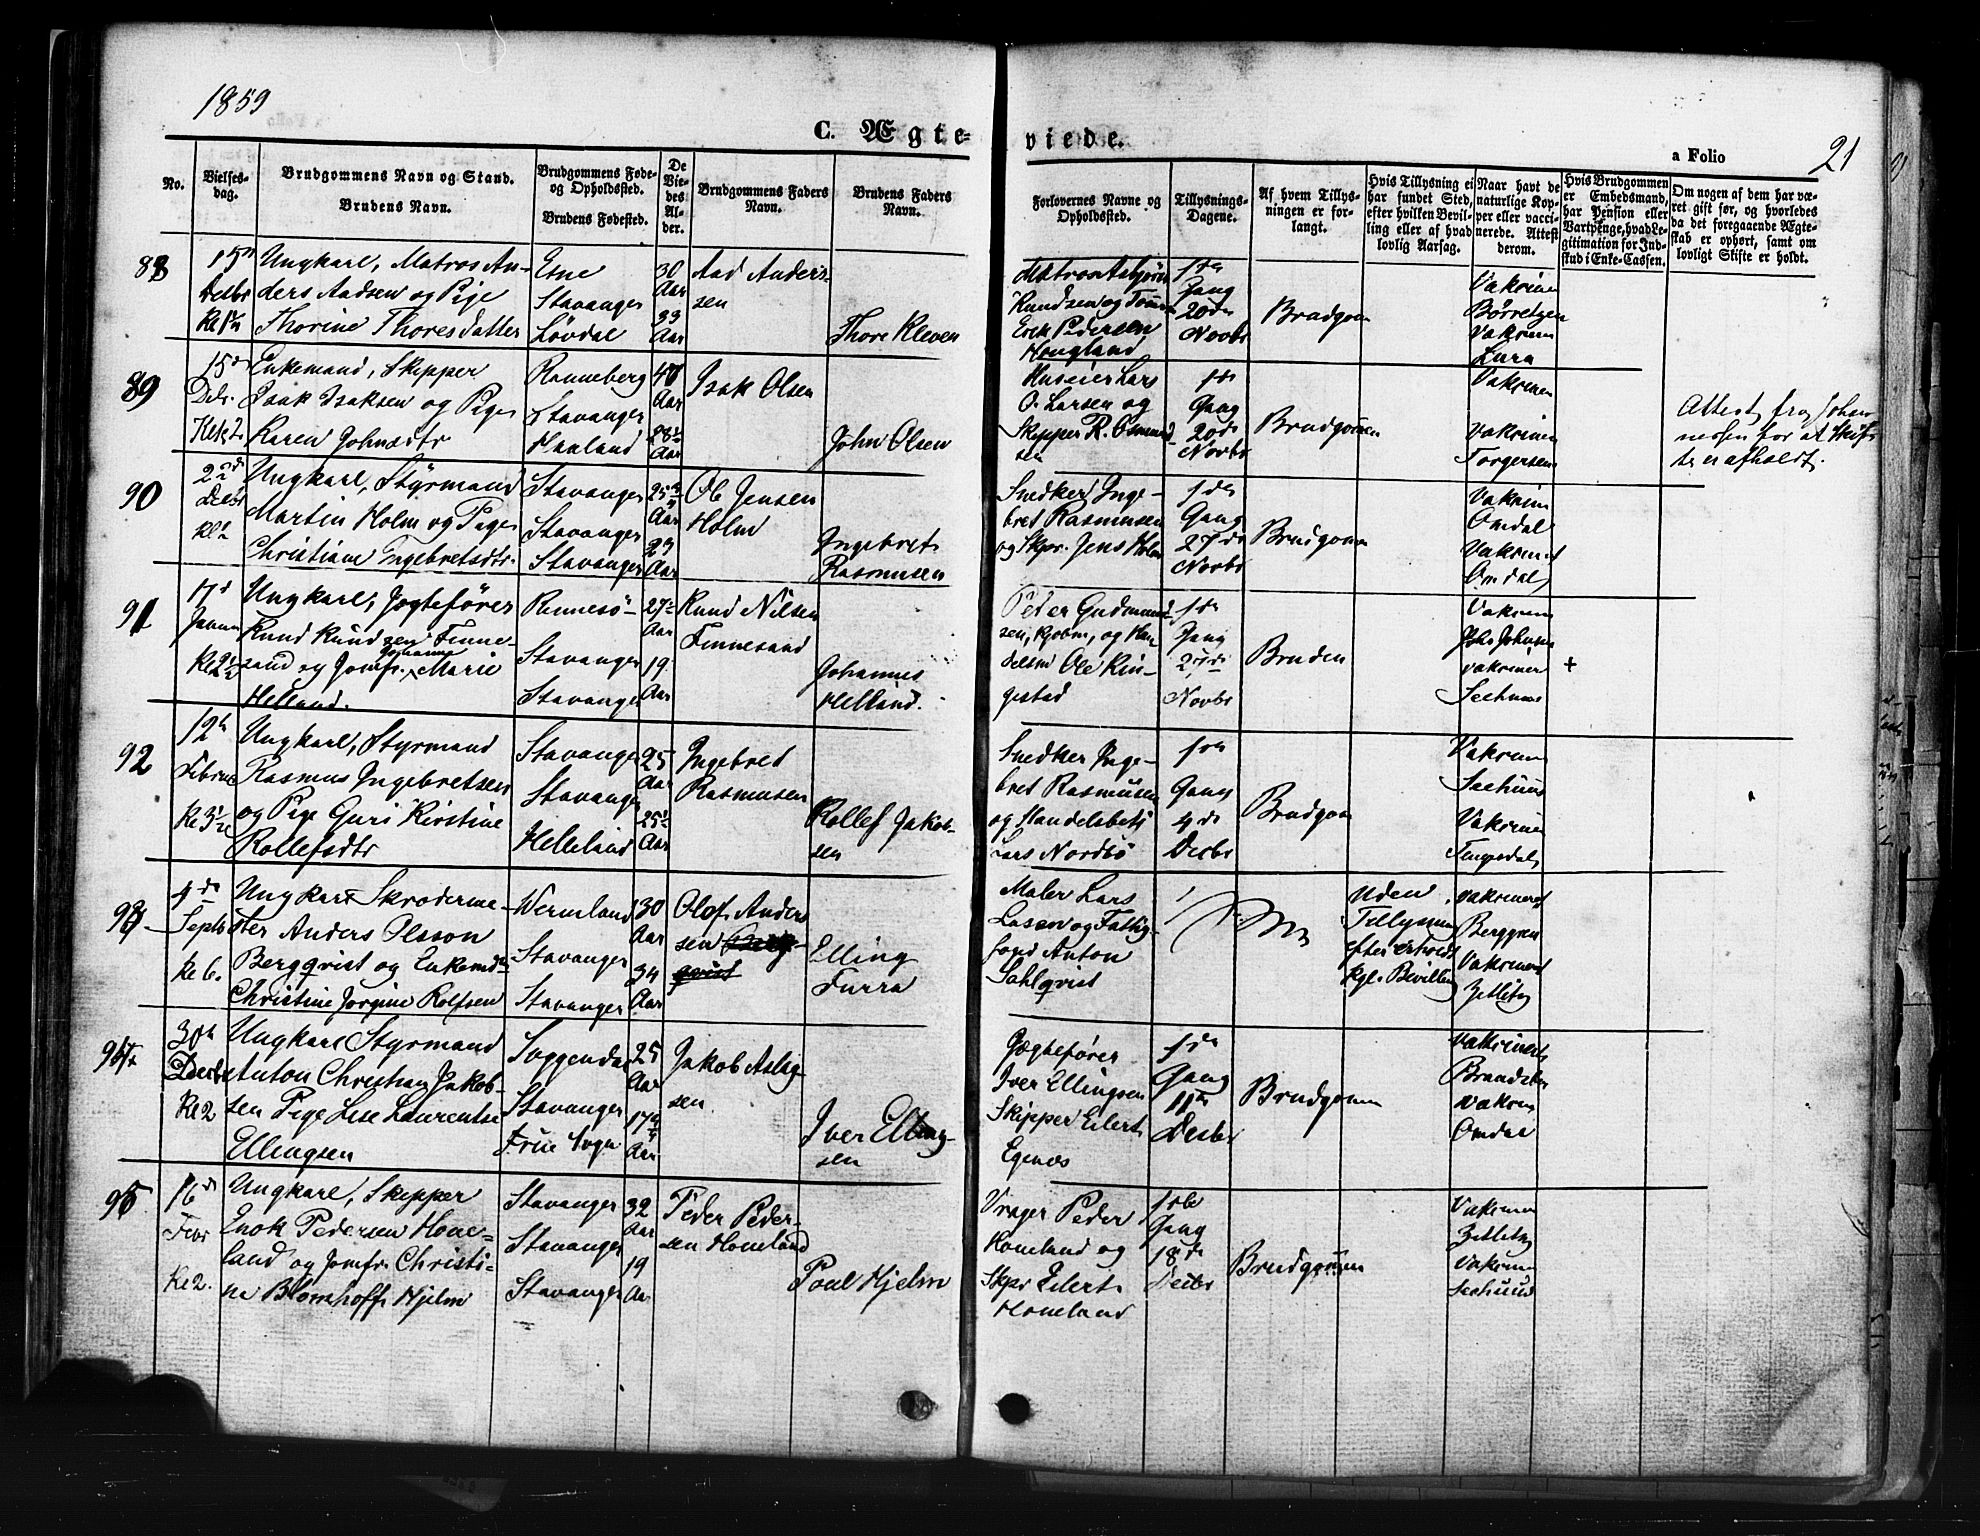 1859
C. Ægteviede.
a Folio
21
No.
Vielses-dag.
Brudgommens Navn og Stand.
Brudens Navn.
Brudgommens Føde- og Opholdssted.
Brudens Fødested.
De Vie-des Al-der.
Brudgommens Faders Navn.
Brudens Faders Navn.
Forlovernes Navne og Opholdssted.
Tillysnings-Dagene.
Af hvem Tillys-ningen er for-langt.
Hvis Tillysning ei har fundet Sted, efter hvilken Bevil-ling eller af hvad lovlig Aarsag.
Naar havt de naturlige Kop-per eller vacci-nerede. Attest derom.
Hvis Brudgommen er Embedsmand, har Pension eller Vartpenge, hvad Le-gitimation for Ind-skud i Enke-Cassen.
Om nogen af dem har væ-ret gift før, og hvorledes da det foregaaende Ægte-skab er ophørt, samt om lovligt Skifte er holdt.
88
15de Decbr
Ungkarl, Matros An-
ders Aadsen og Pige
Thorine Thoresdatter
Etne
Stavanger
Løvdal
30 Aar
33 Aar
Aad Anders-
sen
Thore Kleven
Matros Asbjørn
Knudsen og Tøm
Erik Pedersen
Hougland
1ste Gang
20de Novbr
Brudgom
Vakcinen
Børretzen
Vakcinen
Lura
89
15de Dcbr.
Klok 2
Enkemand, Skipper
Isak Isaksen og Pige
Karen Johnsdtr
Ranneberg
Stavanger
Haaland
40 Aar
28½ Aar
Isak Olsen
John Olsen
Huseier Lars
O. Larsen og
Skipper R. Osmund
sen
1ste Gang
20de Novbr
Brudgommen
Vakcinen
Vakcinen
Torgersen
Attest fra Johan
nesen for at Skif
te er afholdt.
90
2den Decbr
Ungkarl, Styrmand
Martin Holm og Pige
Christiane Ingebretsdtr.
Stavanger
Stavanger
Stavanger
25¾ Aar
23 Aar
Ole Jensen
Holm
Ingebret
Rasmusen
Snedker Inge-
bret Rasmusen
og Skpr. Jens Holm
1ste Gang
27de Novbr
Brudgomen
Vakcin
Omdal
Vakcinert
Omdal
91
17de Januar
Kl 2½
Ungkarl, Jægtefører
Knud Knudsen Finne-
sand og Jomfr. Johanne Marie
Helland.
Rennesö
Stavanger
Stavanger
27½ Aar
19 Aar
Knud Nilsen
Finnesand
Johannes
Helland.
Peder Gudmund
sen, Kjøbm, og Han
delsm Ole Rin-
gestad
1ste Gang
27de Novbr
Bruden
Vakcinen
Johs Johnsen
vakcinen
Seehuus
+
92
12te Februar
Kl 3½
Ungkarl, Styrmand
Rasmus Ingebretsen
og Pige Guri Kirstine
Rollefsdtr
Stavanger
Stavanger
Helleland
25 Aar
25½ Aar
Ingebret
Rasmusen
Rollef Jakob-
sen
Snedker Inge-
bret Rasmusen
og Handelsbetj
Lars Nordbö
1ste Gang
4de Decbr
Brudgom
Vakcinen
Seehuus
Vakcinen
Tengesdal
93
4de Septb
Kl 6.
Ungkarl Skrædderme-
ster Anders Olsson
Bergqvist og Enkemd
Christine Jorgine Rolfsen
Wermland
Stavanger
Stavanger
30 Aar
34 Aar
Olof Anders
sen
Elling
Furra
Maler Lars
Lassen og Fattig-
fogd Anton
Sahlqvist
Uden
Tillysning
efter erholdt
kgl. Bevilling
vakcineret
Berggren
Vakcineret
Zetlitz
94
30te Decbr
Kl 2
Ungkarl Styrmand
Anton Christian Jakob-
sen Pige Lise Laurentse
Ellingsen
Soggendal
Stavanger
Frue Sogn
25 Aar
17¾ Aar
Jakob Aslag-
sen
Iver Elling-
sen
Jægtefører
Iver Ellingsen
Skipper Eilert
Egenes
1ste Gang
11te Decbr
Brudgomen
Vakcinert
Brandsber
vakcin
Omdal
95
16de Febr
Kl 2.
Ungkarl, Skipper
Enok Pedersen Hone-
land og Jomfr. Christi-
ne Blomhoff Hjelm
Stavanger
Stavanger
Stavanger
32 Aar
19 Aar
Peder Peder-
sen Honeland
Poul Hjelm
Vrager Peder
Honeland og
Skpr Eilert
Honeland
1ste Gang
18de Decbr
Brudgommen
Vakcinen
Zetlitz
Vakcinen
Seehuus